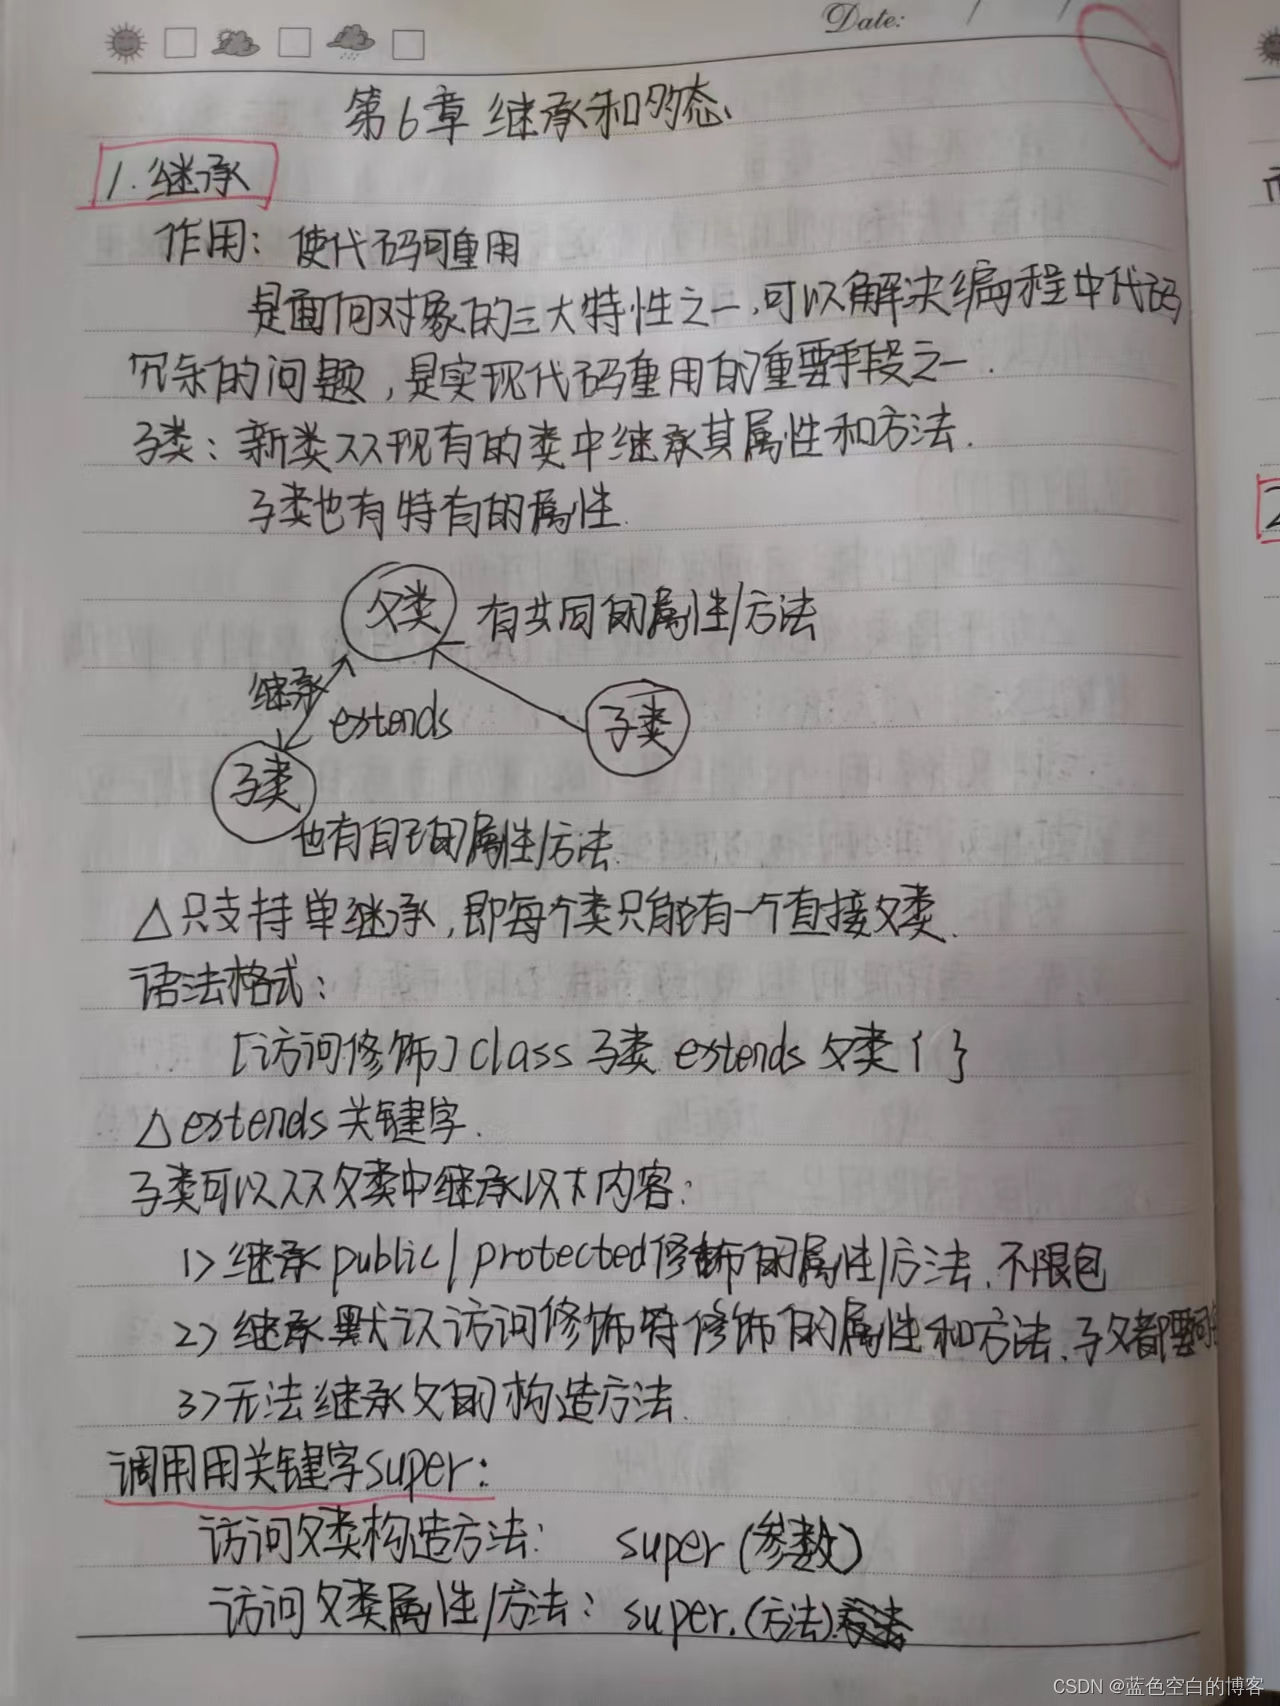 Date: / /
第6章 继承和多态
1.继承
作用：使代码可重用
是面向对象的三大特性之一，可以解决编程中代码
冗余的问题，是实现代码重用的重要手段之一.
子类：新类从现有的类中继承其属性和方法.
子类也有特有的属性.
父类 有共同的属性/方法
继承
extends
子类
子类
也有自己的属性/方法.
△只支持单继承，即每个类只能有一个直接父类.
语法格式：
[访问修饰]class 子类 extends 父类{ }
△extends关键字.
子类可以从父类中继承以下内容：
1>继承public/protected修饰的属性/方法.不限包
2>继承默认访问修饰符修饰的属性和方法.子父都要
3>无法继承父的构造方法.
调用用关键字super：
访问父类构造方法： super(参数)
访问父类属性/方法：super.(方法).
2
CSDN @蓝色空白的博客